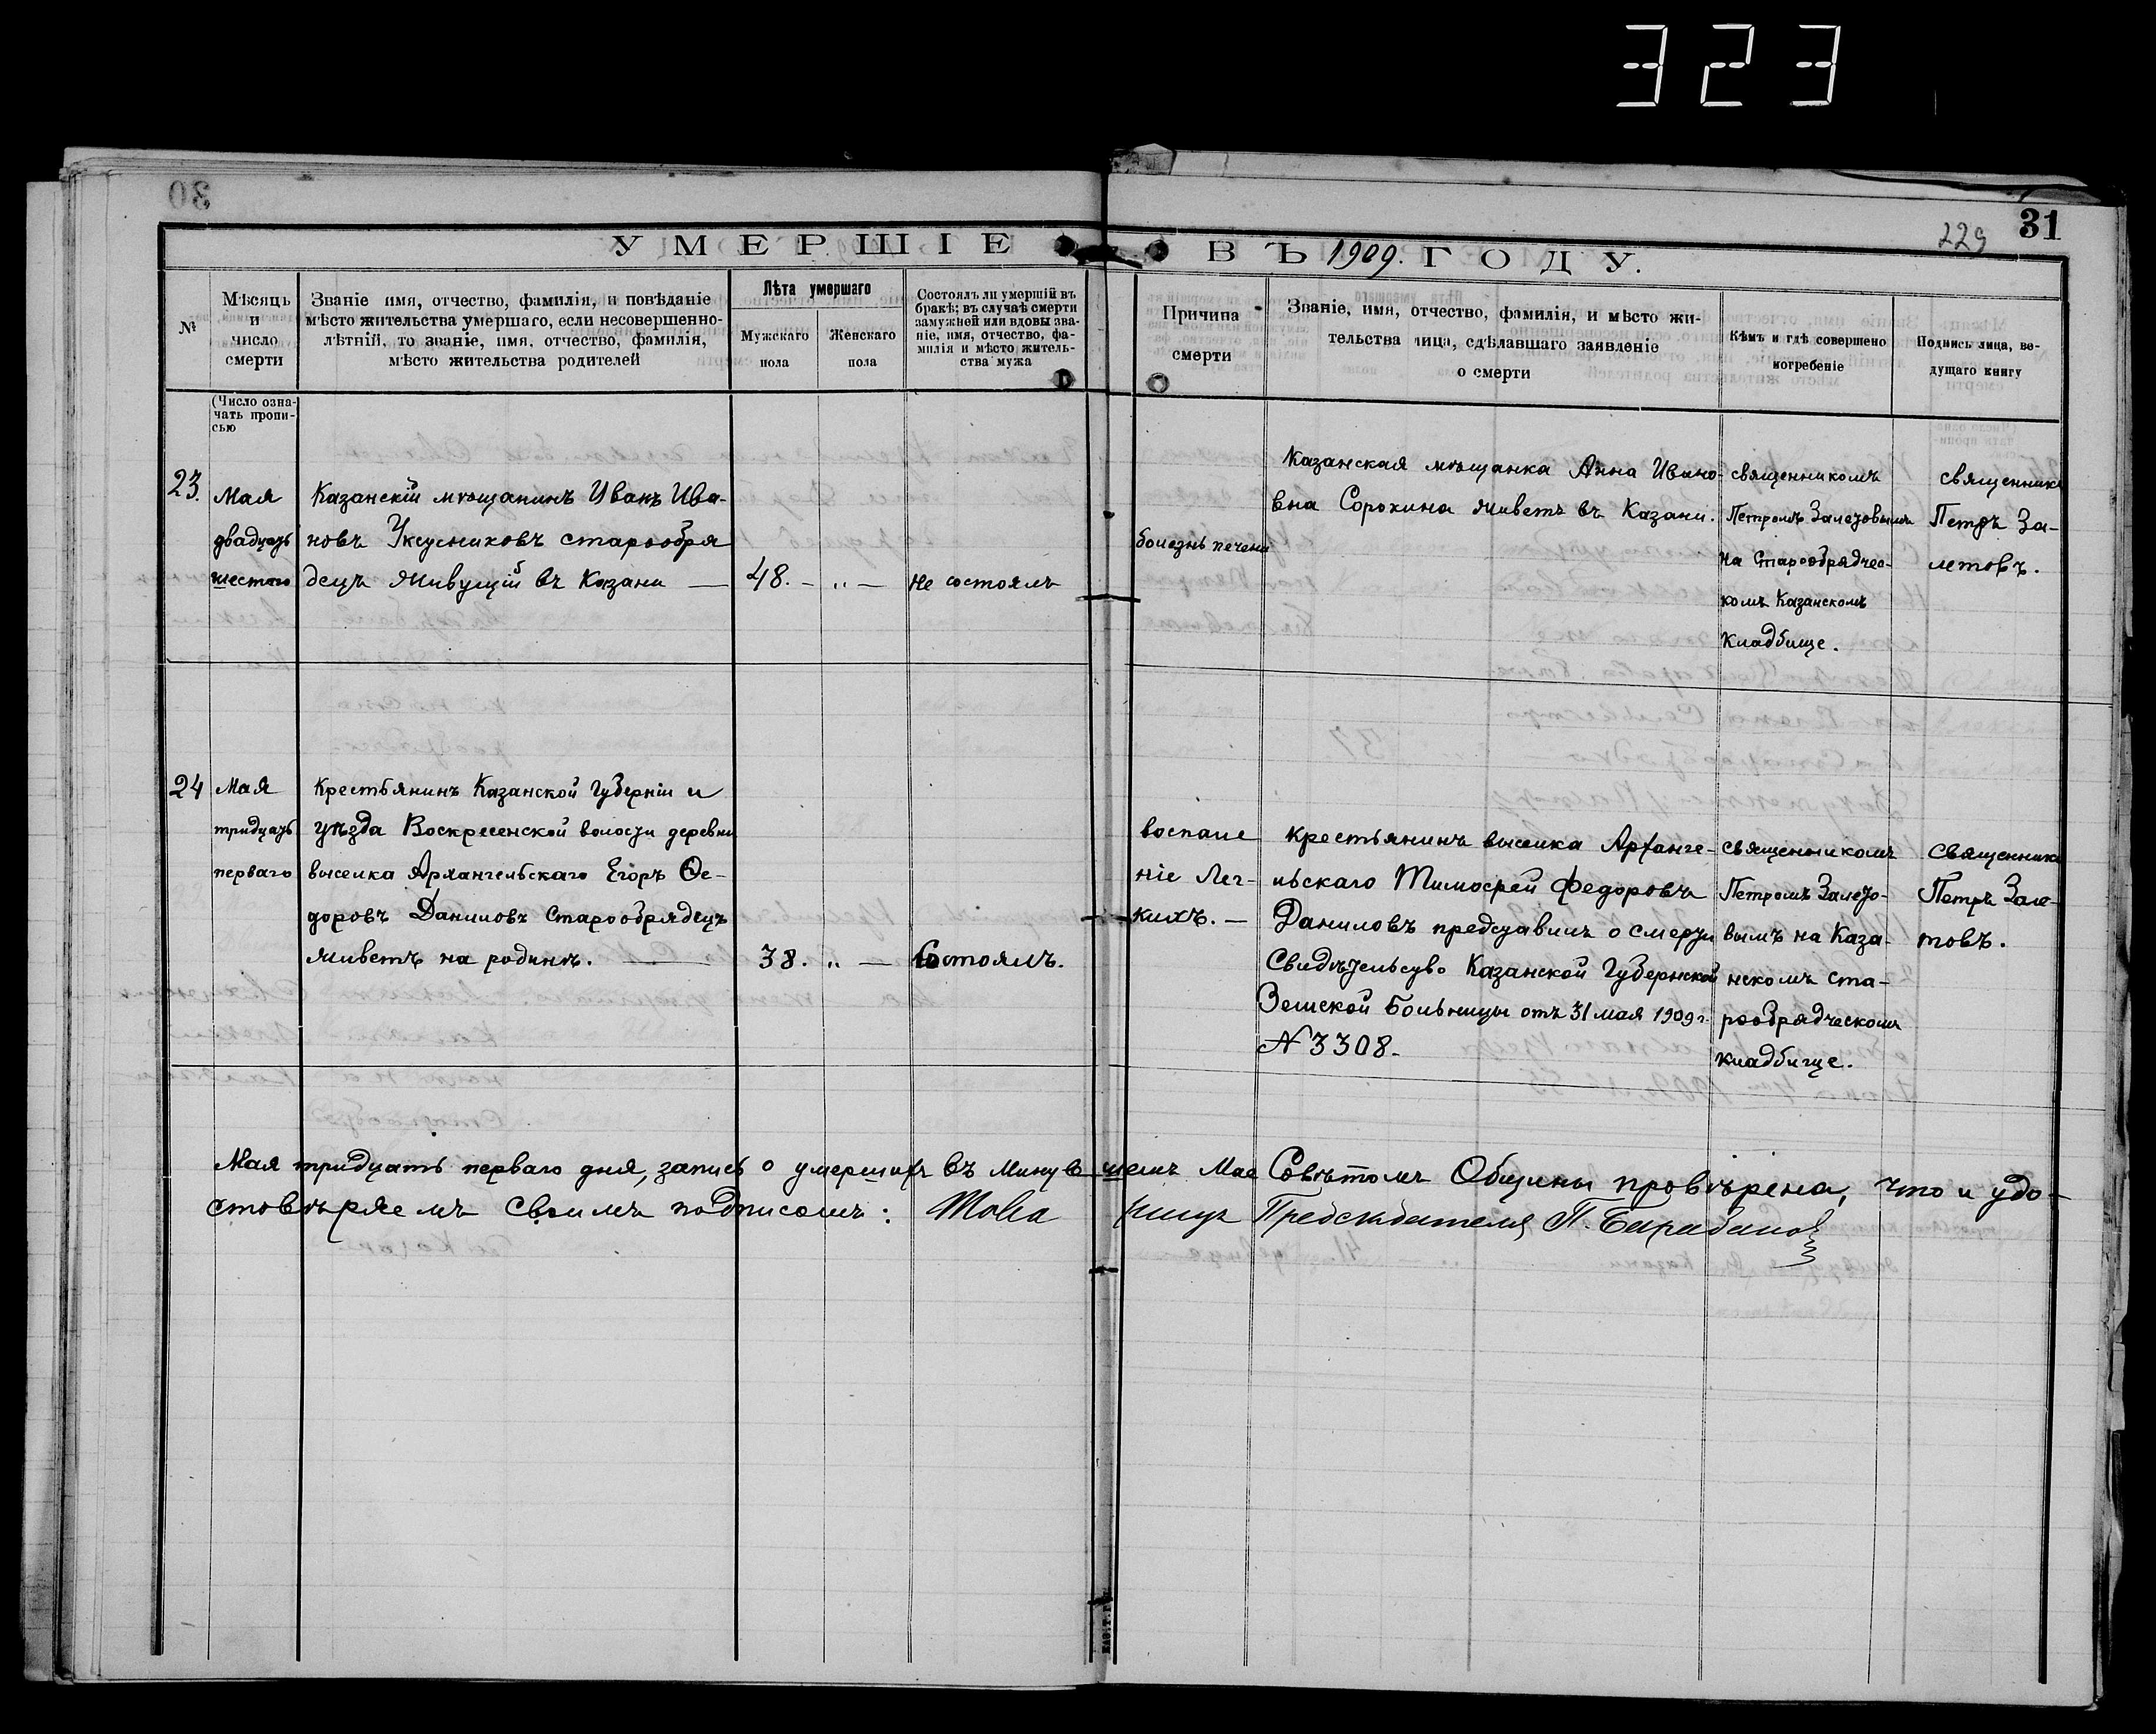 323
30
31
229
УМЕРШІЕ ВЪ 1909. ГОДУ.
№
Мѣсяцъ
и
число
смерти
Званіе имя, отчество, фамилія, и повѣданіе
мѣсто жительства умершаго, если несовершенно-
лѣтній, то званіе, имя, отчество, фамилія,
мѣсто жительства родителей
Лѣта умершаго
Мужскаго
пола
Женскаго
пола
Состоялъ ли умершій въ
бракѣ; въ случаѣ смерти
замужней или вдовы зва-
ніе, имя, отчество, фа-
милія и мѣсто житель-
ства мужа
Причина
смерти
Званіе, имя, отчество, фамилія, и мѣсто жи-
тельства лица, сдѣлавшаго заявленіе
о смерти
Кѣмъ и гдѣ совершено
погребеніе
Подпись лица, ве-
дущаго книгу
(Число озна-
чать пропи-
сью
23.
Мая
двадцать
шестого
Казанскій мѣщанинъ Иванъ Ива-
новъ Уксусниковъ старообря
децъ живущій въ Казани —
48. - „ —
не состоялъ
болѣзнь печени
Казанская мѣщанка Анна Ивано-
вна Сорокина живетъ въ Казани.
священникомъ
Петромъ Залетовымъ
на Старообрядчес-
комъ Казанскомъ
Кладбище.
священникъ
Петръ За-
летовъ.
24
Мая
тридцать
перваго
Крестьянинъ Казанской Губерніи и
уѣзда Воскресенской волости деревни
выселка Архангельскаго Егоръ Ѳе-
доровъ Даниловъ Старообрядецъ
живетъ на родинѣ. —
38. „ —
Состоялъ.
воспале
ніе Лег-
кихъ. —
крестьянинъ выселка Арханге-
льскаго Тимофей Федоровъ
Даниловъ представилъ о смерти
Свидѣтельсво Казанской Губернской
Земской Больницы отъ 31 мая 1909 г.
№ 3308.
священникомъ
Петромъ Залето-
вымъ на Каза-
нскомъ ста-
рообрядческомъ
кладбище.
Священникъ
Петръ Зале-
товъ.
Мая тридцать перваго дня, запись о умершихъ въ минувшемъ Мае Совѣтомъ Общины провѣрена, что и удо-
стовѣряемъ своимъ подписомъ: Това рищъ Предсѣдателя П. Барабанов
КАЗ. Т. Г. П.